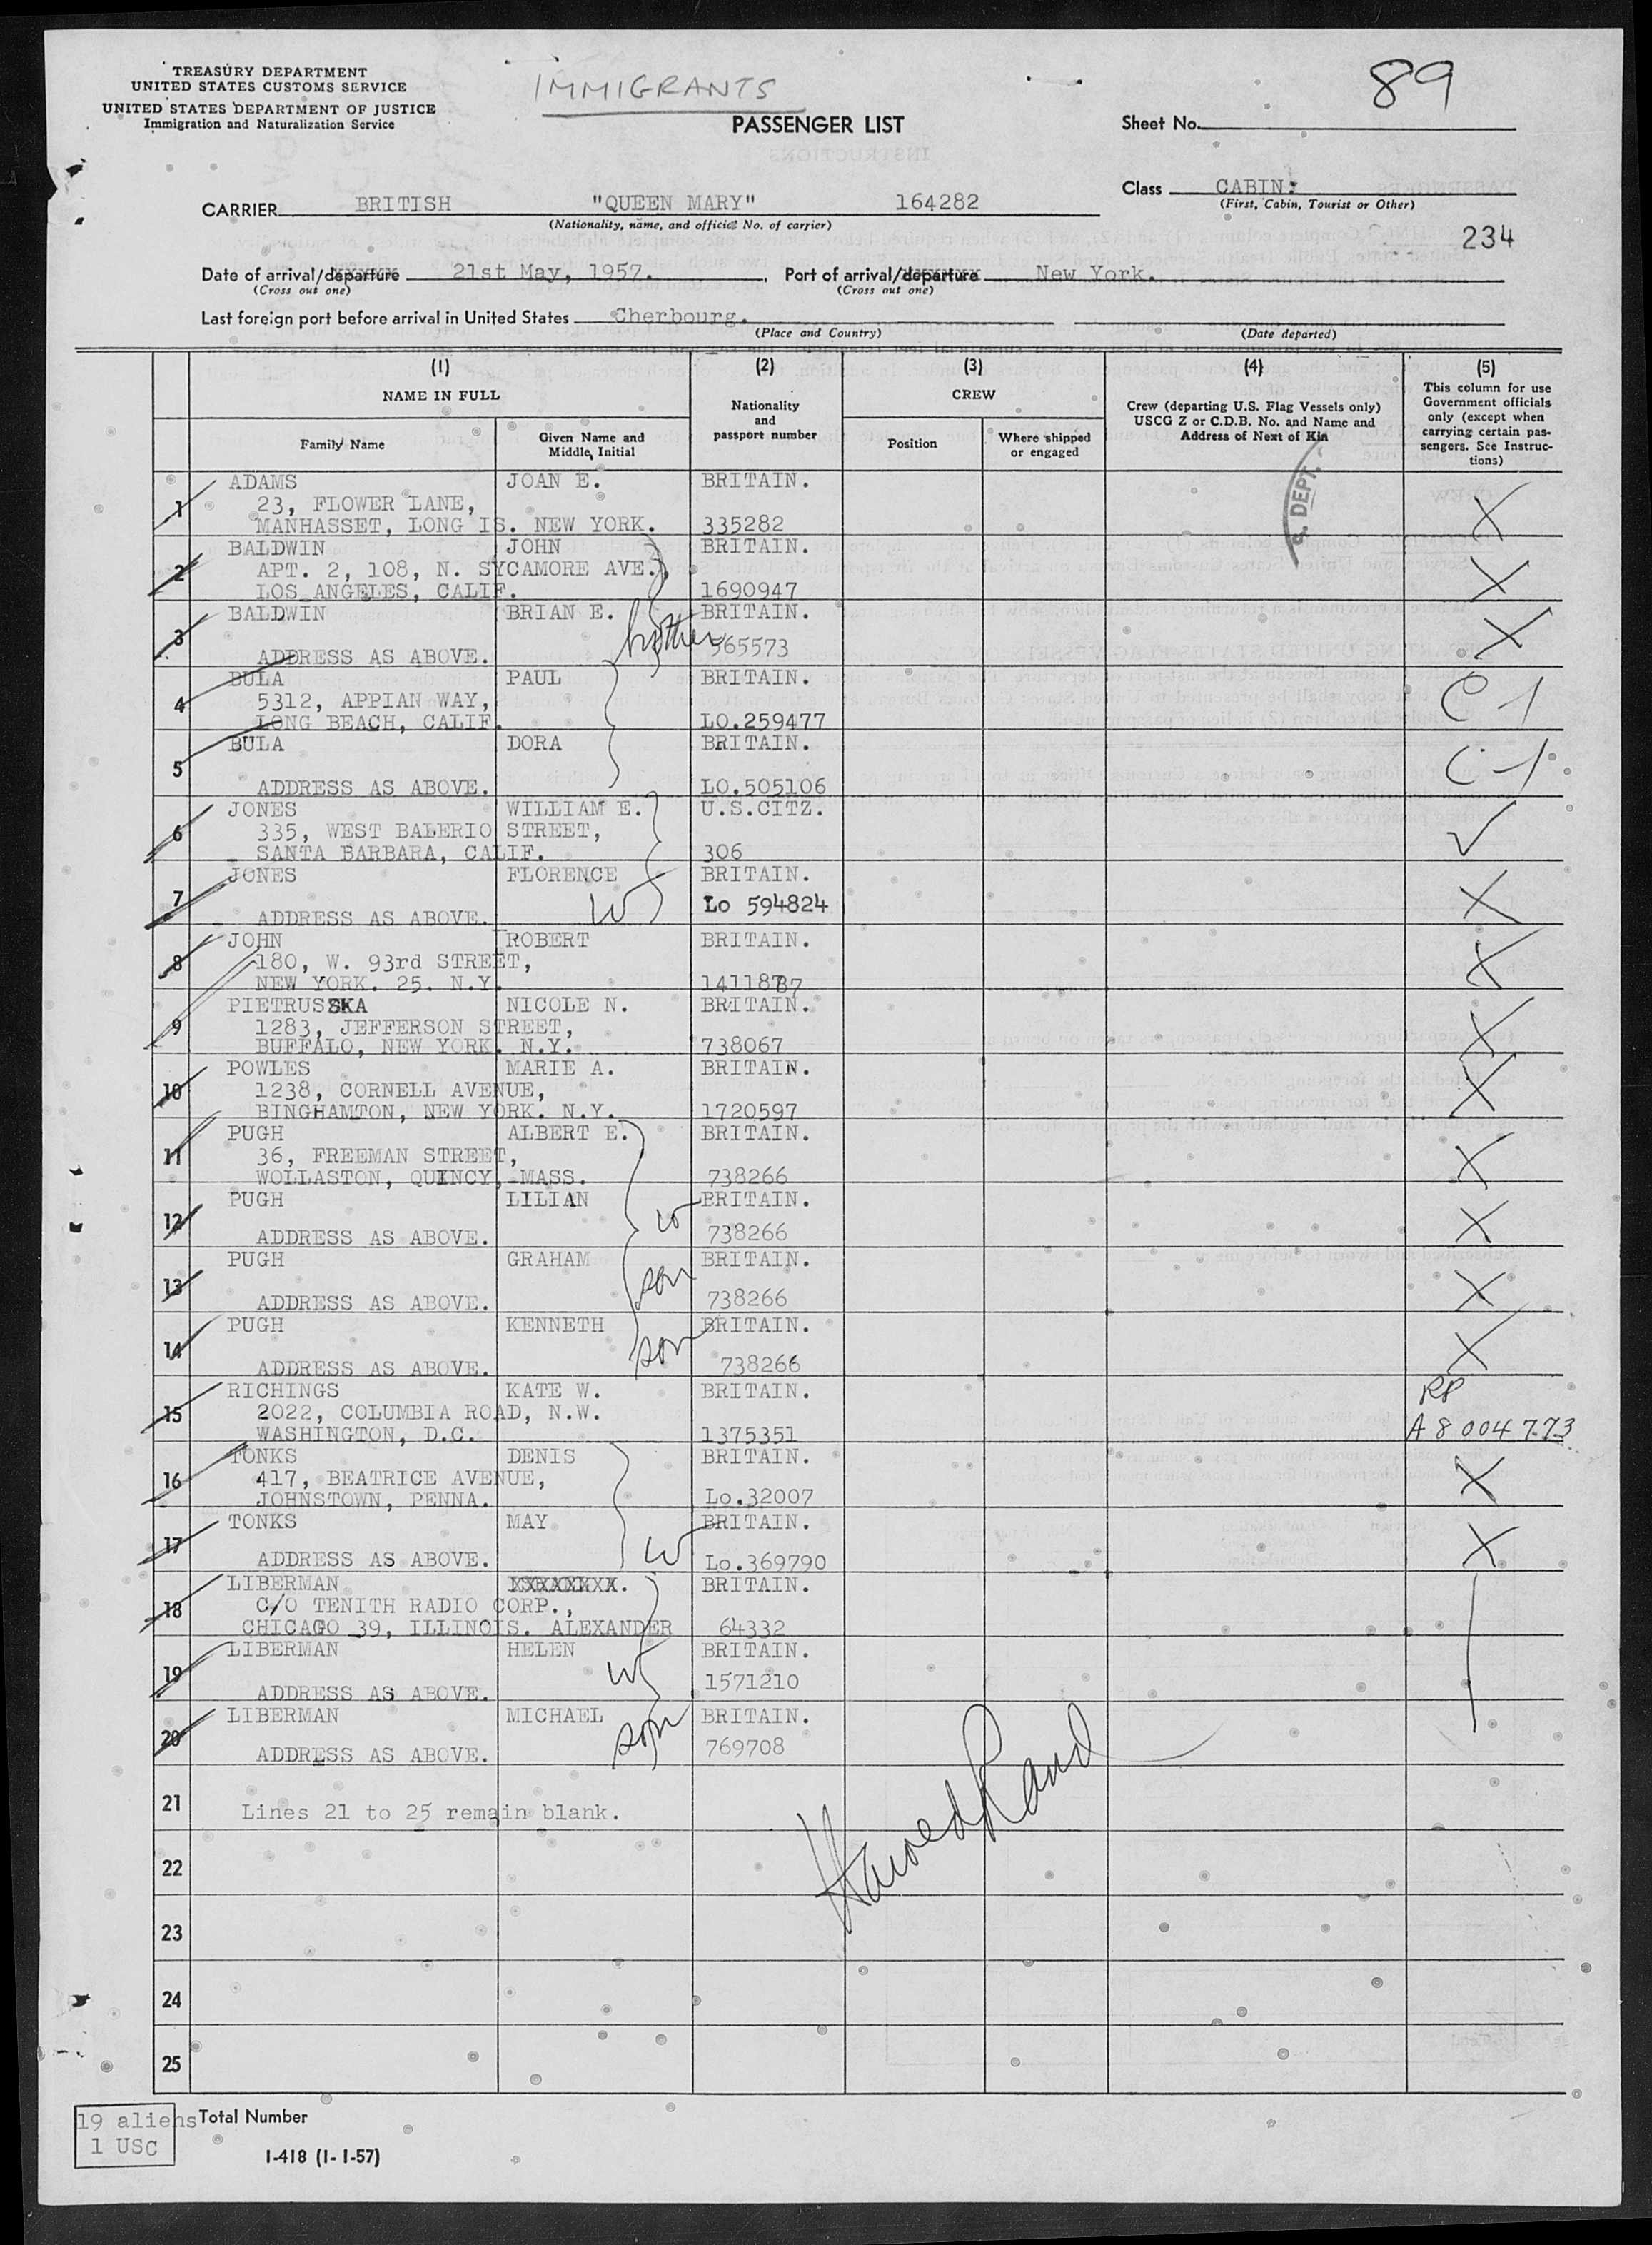 TREASURY DEPARTMENT
UNITED STATES CUSTOMS SERVICE
UNITED STATES DEPARTMENT OF JUSTICE
Immigration and Naturalization Service
IMMIGRANTS
PASSENGER LIST
89
Sheet No.
Class CABIN.
(First, Cabin, Tourist or Other)
CARRIER BRITISH "QUEEN MARY" 164282
(Nationality, name, and official No. of carrier)
234
Date of arrival/departure 21st May, 1957. Port of arrival/departure New York.
(Cross out one) (Cross out one)
Last foreign port before arrival in United States Cherbourg.
(Place and Country) (Date departed)
(1) (2) (3) (4) (5)
NAME IN FULL
Family Name
Given Name and Middle Initial
Nationality and passport number
CREW
Position
Where shipped or engaged
Crew (departing U.S. Flag Vessels only)
USCG Z or C.D.B. No. and Name and
Address of Next of Kin
This column for use
Government officials
only (except when
carrying certain pas-
sengers. See Instruc-
tions)
. DEPT.
1 ADAMS JOAN E. BRITAIN.
23, FLOWER LANE,
MANHASSET, LONG IS. NEW YORK. 335282 X
2 BALDWIN JOHN BRITAIN.
APT. 2, 108, N. SYCAMORE AVE.,
LOS ANGELES, CALIF. 1690947 X
3 BALDWIN BRIAN E. brother BRITAIN.
ADDRESS AS ABOVE. 565573 X
4 BULA PAUL BRITAIN.
5312, APPIAN WAY,
LONG BEACH, CALIF. LO.259477 C-1
5 BULA DORA BRITAIN.
ADDRESS AS ABOVE. LO.505106 C-1
6 JONES WILLIAM E. U.S.CITZ.
335, WEST BALERIO STREET,
SANTA BARBARA, CALIF. 306 ✓
7 JONES FLORENCE BRITAIN.
ADDRESS AS ABOVE. W Lo 594824 X
8 JOHN ROBERT BRITAIN.
180, W. 93rd STREET,
NEW YORK. 25. N.Y. 1411887 X
9 PIETRUSSKA NICOLE N. BRITAIN.
1283, JEFFERSON STREET,
BUFFALO, NEW YORK. N.Y. 738067 X
10 POWLES MARIE A. BRITAIN.
1238, CORNELL AVENUE,
BINGHAMTON, NEW YORK. N.Y. 1720597 X
11 PUGH ALBERT E. BRITAIN.
36, FREEMAN STREET,
WOLLASTON, QUINCY, MASS. 738266 X
12 PUGH LILIAN W BRITAIN.
ADDRESS AS ABOVE. 738266 X
13 PUGH GRAHAM son BRITAIN.
ADDRESS AS ABOVE. 738266 X
14 PUGH KENNETH son BRITAIN.
ADDRESS AS ABOVE. 738266 X
15 RICHINGS KATE W. BRITAIN. RP
2022, COLUMBIA ROAD, N.W.
WASHINGTON, D.C. 1375351 A 8 004 773
16 TONKS DENIS BRITAIN.
417, BEATRICE AVENUE,
JOHNSTOWN, PENNA. Lo.32007 X
17 TONKS MAY BRITAIN.
ADDRESS AS ABOVE. W Lo.369790 X
18 LIBERMAN BRITAIN.
C/O TENITH RADIO CORP.,
CHICAGO 39, ILLINOIS. ALEXANDER 64332
19 LIBERMAN HELEN BRITAIN.
ADDRESS AS ABOVE. W 1571210
20 LIBERMAN MICHAEL son BRITAIN.
ADDRESS AS ABOVE. 769708
21 Lines 21 to 25 remain blank.
22
23
24
25
19 aliens Total Number
1 USC
I-418 (1-1-57)